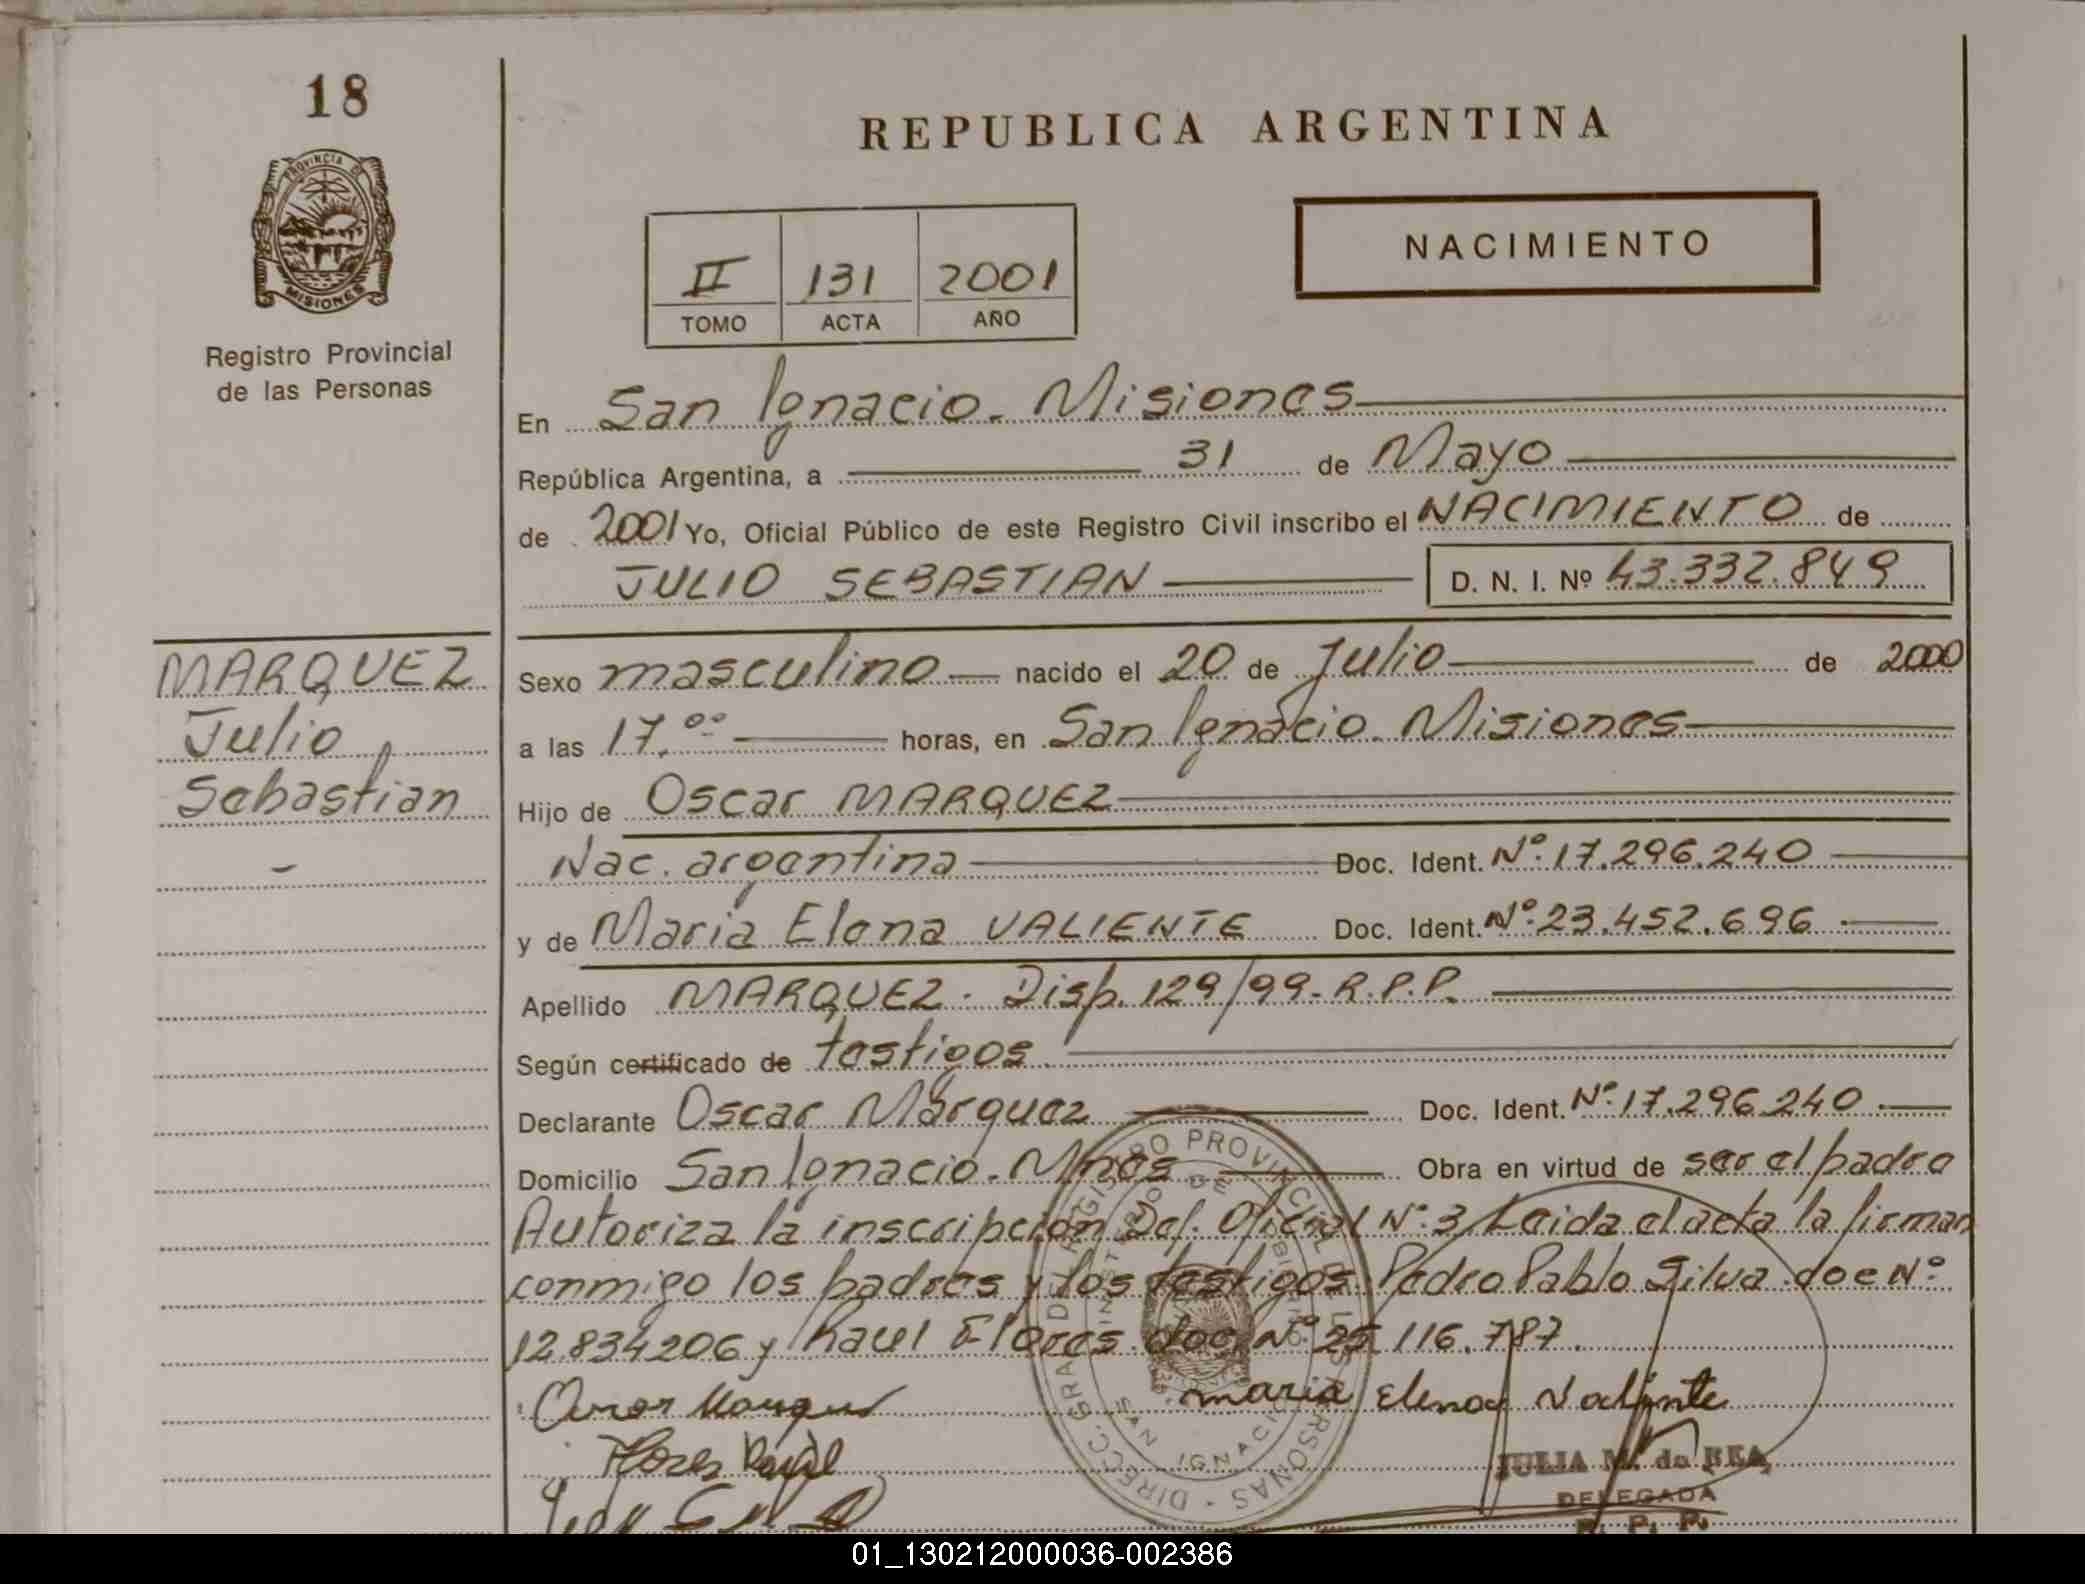 18
REPUBLICA ARGENTINA
PROVINCIA DE
MISIONES
NACIMIENTO
II 131 2001
TOMO ACTA AÑO
Registro Provincial
de las Personas
En San Ignacio. Misiones
República Argentina, a 31 de Mayo
de 2001 Yo, Oficial Público de este Registro Civil inscribo el NACIMIENTO de
JULIO SEBASTIAN D. N. I. Nº 43.332.849
MARQUEZ
Julio
Sebastian
Sexo masculino nacido el 20 de Julio de 2000
a las 17.00 horas, en San Ignacio. Misiones
Hijo de Oscar MARQUEZ
Nac. argentina Doc. Ident. Nº 17.296.240
y de Maria Elena VALIENTE Doc. Ident. Nº 23.452.696
Apellido MARQUEZ. Disp. 129/99-R.P.P.
Según certificado de testigos
Declarante Oscar Marquez Doc. Ident. Nº 17.296.240
Domicilio San Ignacio. Mnes Obra en virtud de ser el padre
Autoriza la inscripción Del. Oficial Nº 3 Leida el acta la firman
conmigo los padres y los testigos Pedro Pablo Silva doc Nº
12.834206 y Raul Flores doc. Nº 25.116.787.
Oscar Marquez maria Elena Valiente
Flores Raul
JULIA M. de BEA
DELEGADA
R. P. P.
DIRECC. GRAL. DEL REGISTRO PROVINCIAL DE LAS PERSONAS
SAN IGNACIO
01_130212000036-002386